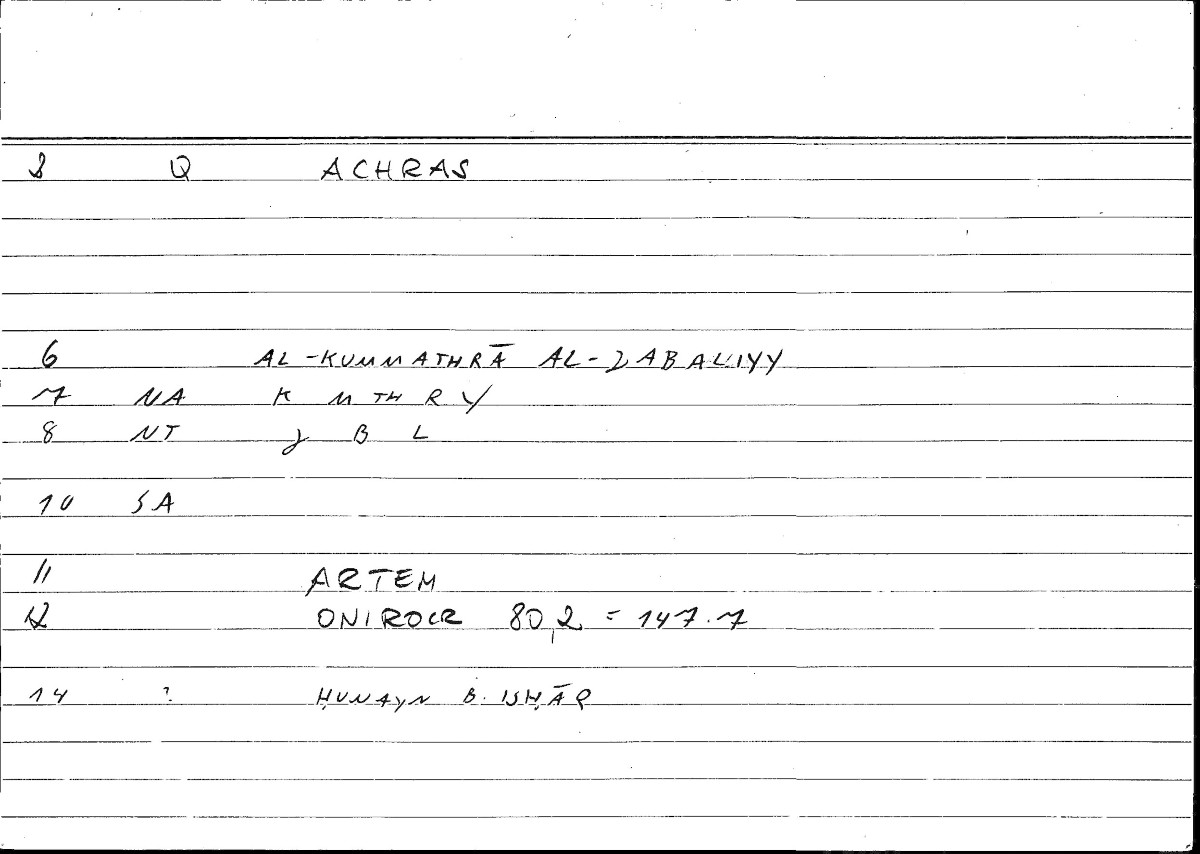 Q ACHRAS
6 AL-KUMMATHRĀ AL-JABALIYY
7 NA K M TH R Y
8 NT J B L
10 SA
11 ARTEM
12 ONIROCR 80,2 = 147.7
14 ? ḤUNAYN B. ISḤĀQ